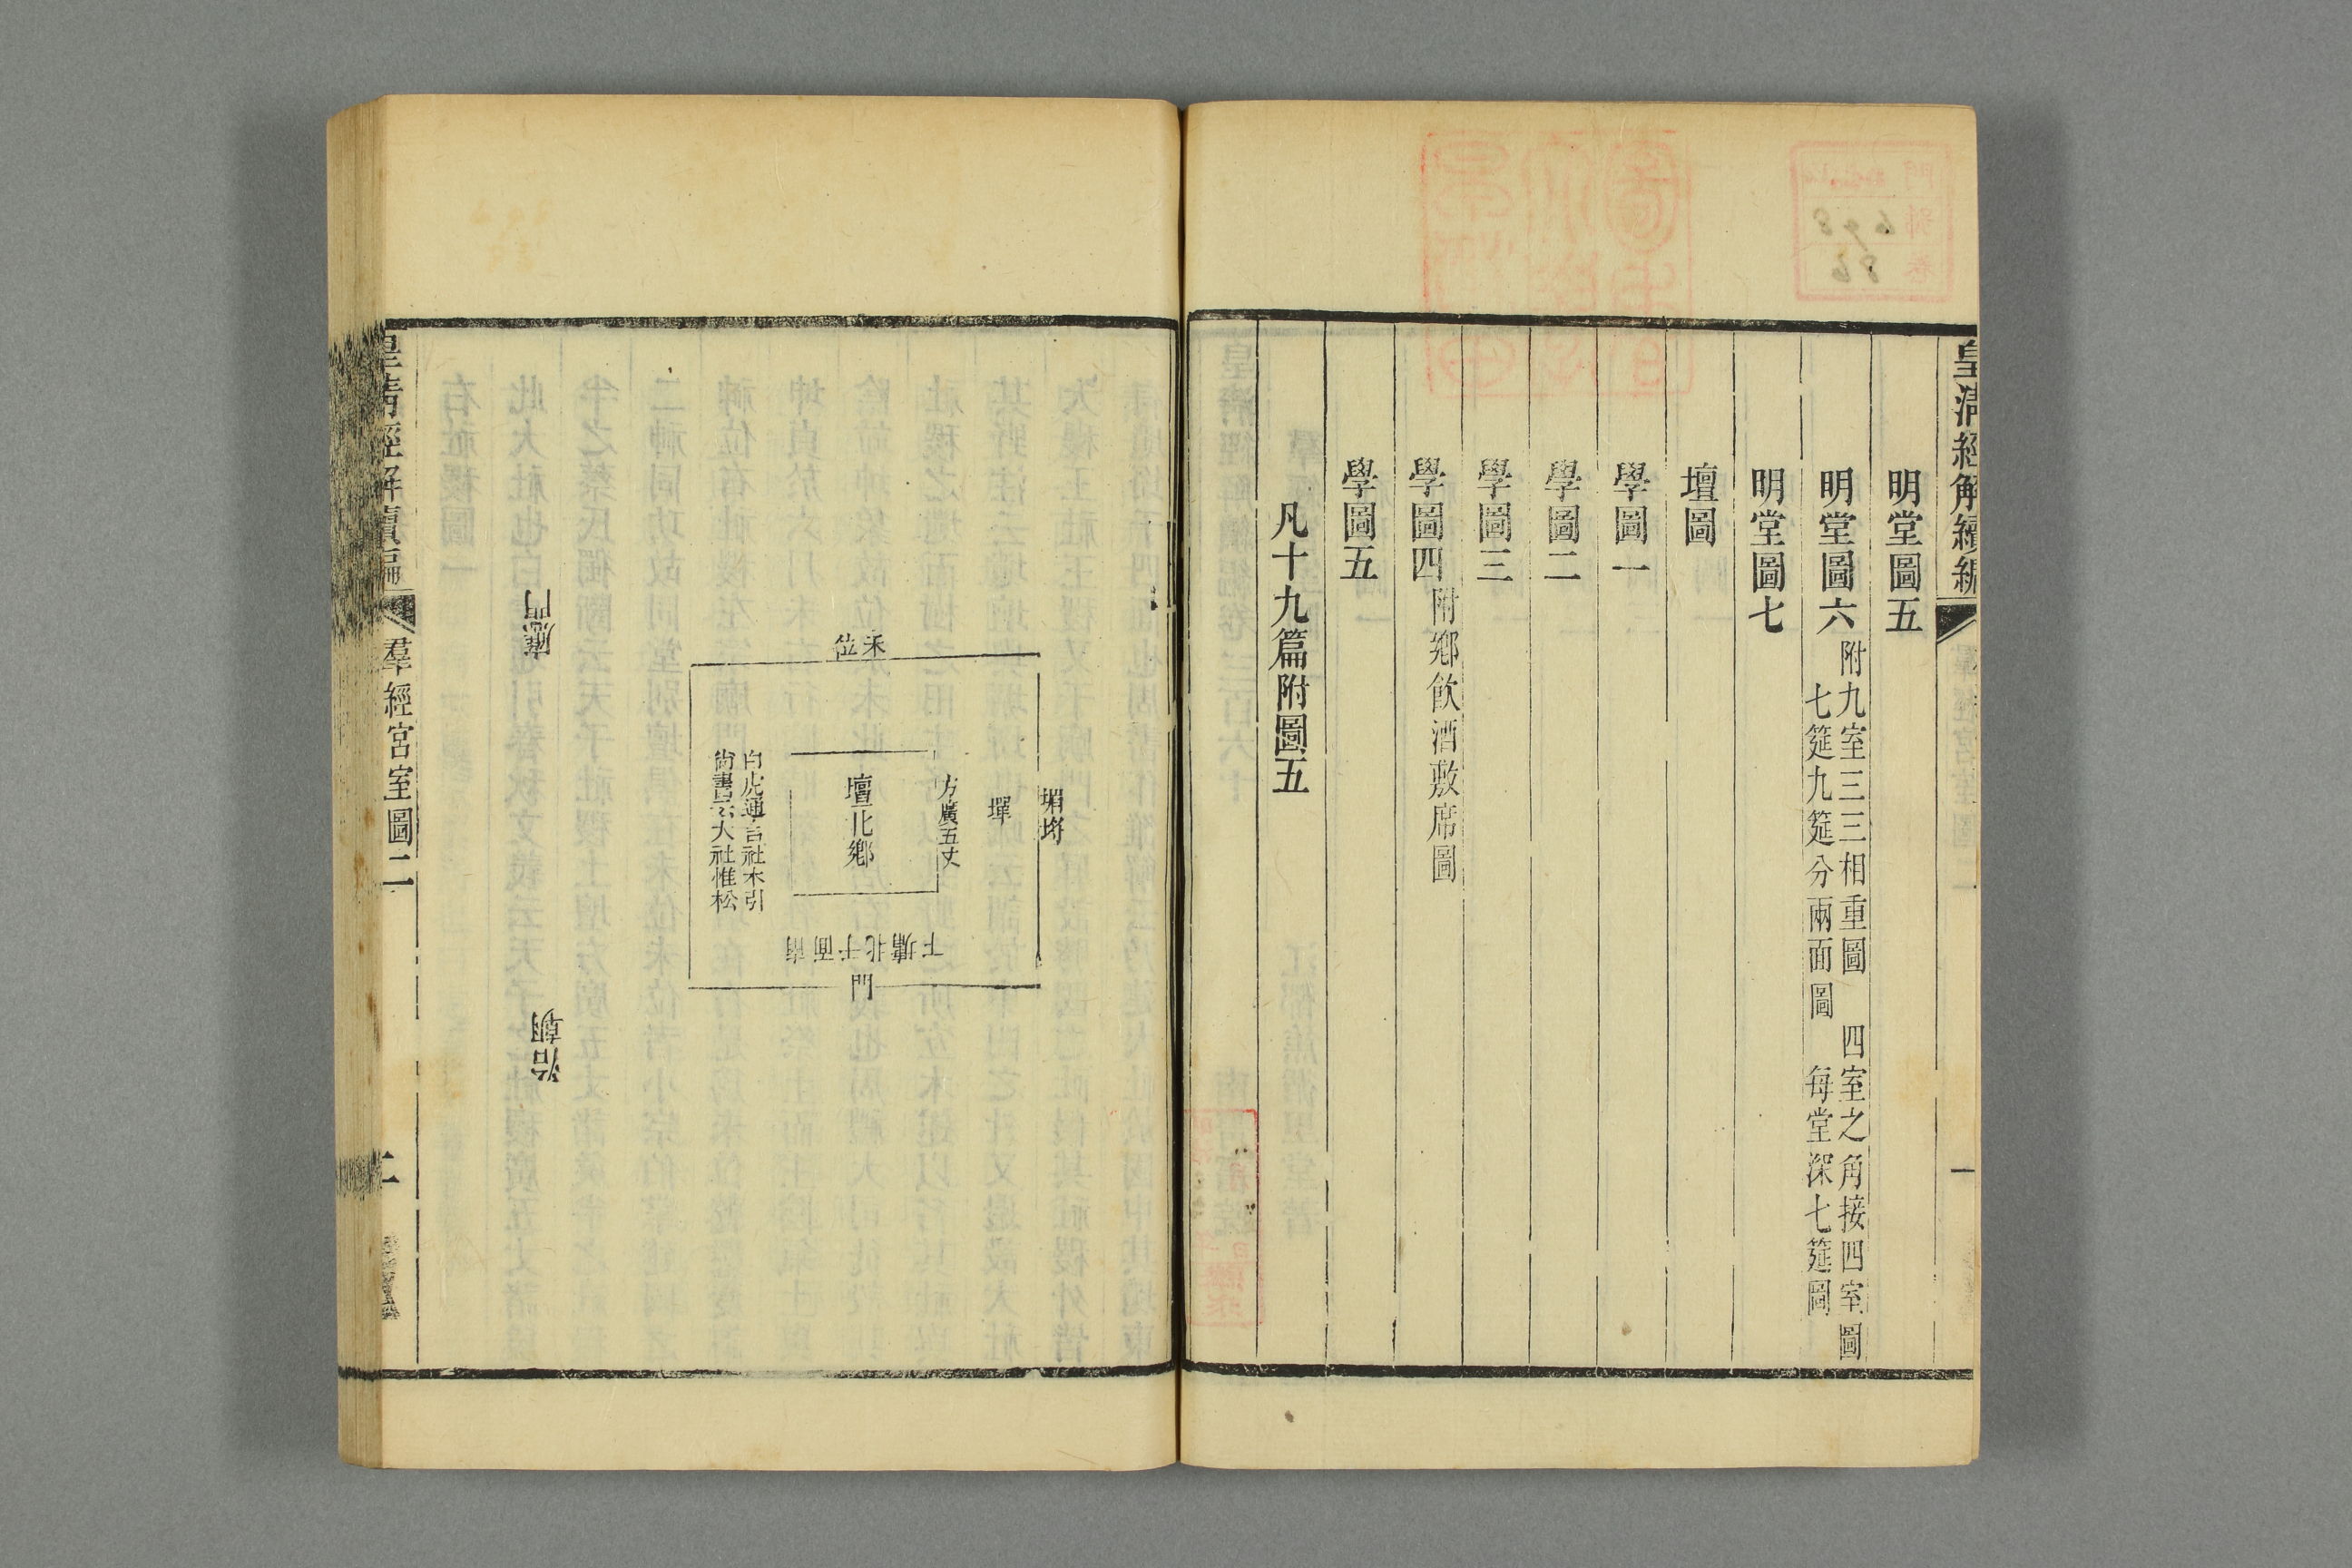 皇清經解續編
一
明堂圖五
明堂圖六 附九室三三相重圖 四室之角接四室圖
七筵九筵分兩面圖 每堂深七筵圖
明堂圖七
壇圖
學圖一
學圖二
學圖三
學圖四 附鄉飲酒敷席圖
學圖五
凡十九篇附圖五
壝埒
墠
方廣五丈
未位
壇北鄉
下墉北于面南
門
白虎通言社木引
尚書云大社惟松
應門
治朝
皇清經解續編
羣經宮室圖二
二